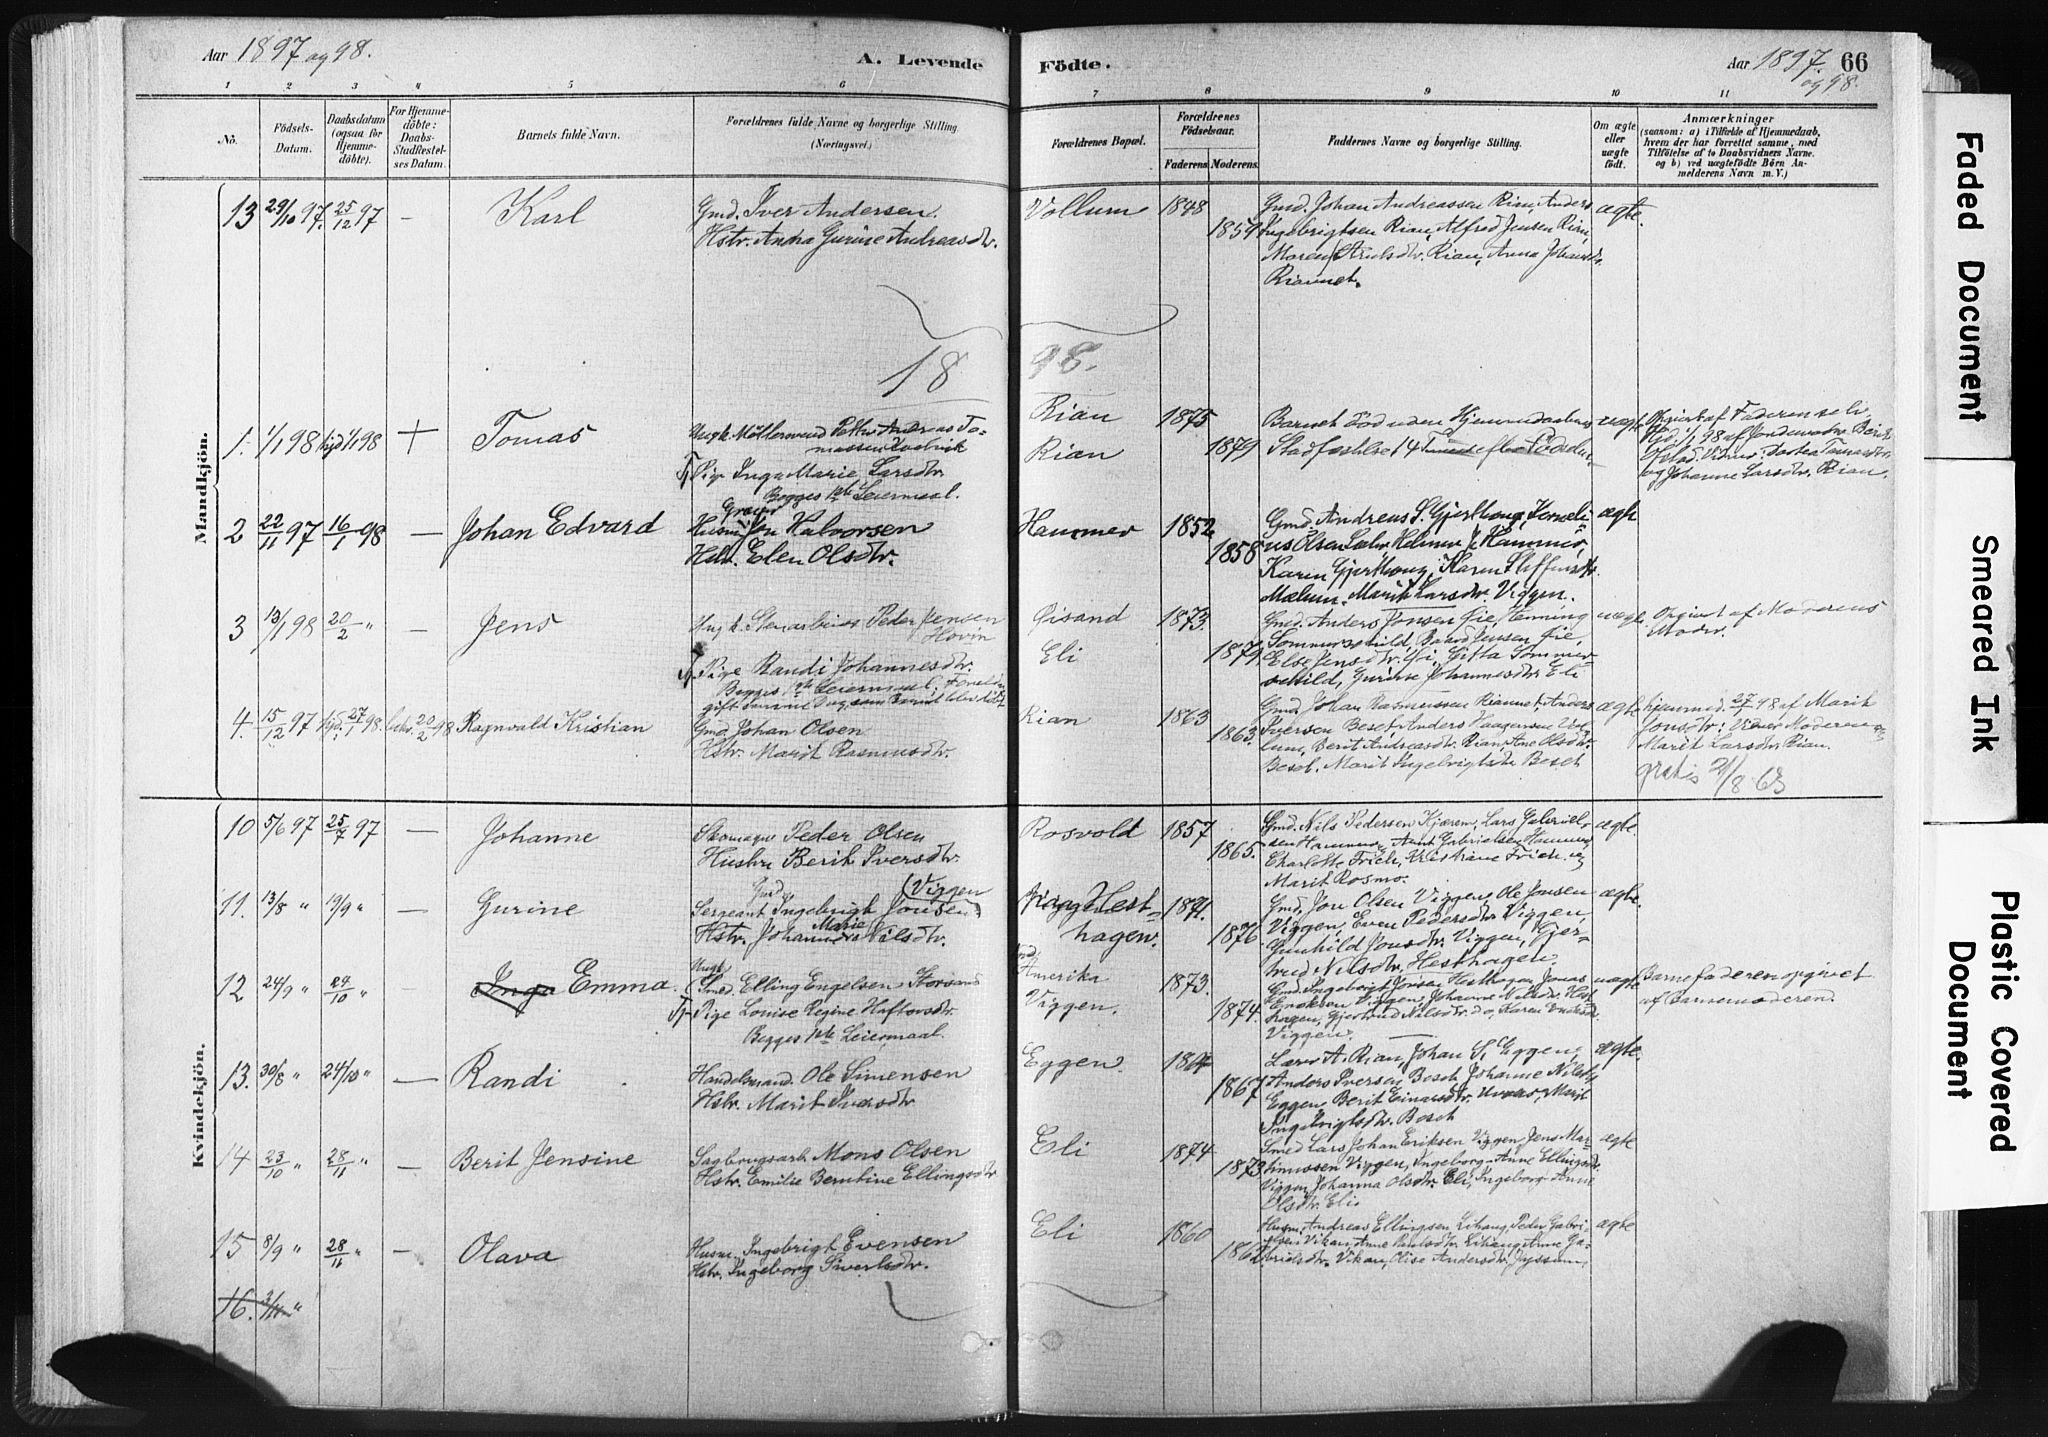 Aar 1897 og 98.
A. Levende Födte.
Aar 1897. og 98.
66
1 2 3 4 5 6 7 8 9 10 11
No.
Födsels-Datum.
Daabsdatum (ogsaa for Hjemmedöbte).
For Hjemmedöbte: Daabs-Stadfæstelses Datum.
Barnets fulde Navn.
Forældrenes fulde Navne og borgerlige Stilling. (Næringsvei.)
Forældrenes Bopæl.
Forældrenes Födselsaar.
Faderens. Moderens.
Faddernes Navne og borgerlige Stilling.
Om ægte eller uægte födt.
Anmærkninger
(saasom: a) i Tilfælde af Hjemmedaab, hvem der har forrettet samme, med Tilföielse af to Daabsvidners Navne. og b) ved uægtefödte Börn Anmelderens Navn m. V.)
Mandkjön.
13 29/10 97. 25/12 97 — Karl
Gmd. Iver Andersen.
Hstr. Andrea Gurine Andreasdtr.
Vollum 1848
1854
Gmd. Johan Andreassen Rian, Anders
Ingebrigtsen Rian, Alfred Jensen Rian,
Maren Arntsdtr. Rian, Anna Johansdtr.
Riannet.
ægte.
1898.
1. 1/1 98 hjd 1/1 98 + Tomas
Ungk. Möllersvend Petter Andreas Tomassen
Pige Inga Marie Larsdtr
Begges 1ste Leiermaal.
Rian 1875
Rian 1879
Barnet död uden Hjemmedaabens
Stadfæstelse 14 Timer efter Födselen.
uægte
Opgivet af Faderen selv.
Hjd. 1/1 98 af
Vidner: Dortea Tomasdtr.
og Johanne Larsdtr. Rian.
2 22/11 97 16/1 98 — Johan Edvard
Husm. Jon Halvorsen
Hstr. Elen Olsdtr.
Hammer 1852
1858
Gmd. Andreas S. Gjerthaug, Korneli-
us Olsen Hammer,
Karen Gjerthaug, Karen Steffensdtr.
Mælum. Marit Larsdtr. Viggen.
ægte
3 13/1 98 20/2 " — Jens
Ungk. Stenarbeider Peder Jensen
Hovin
Pige Randi Johannesdtr.
Begges 1ste Leiermaal;
gift samme Dag som Barnet blev döbt
Öisand 1873
Eli 1879
Gmd. Anders Tonsen Öie, Henning
Sommerschild, Jensen Öie
Else Jensdtr. Öie, Gitta Sommer-
schild, Gurine Johannesdtr Eli
uægte
Opgivet af Moderens
Moder.
4. 15/12 97 hjd. 27/1 98. bekr. 20/2 98 Ragnvald Kristian
Gmd. Johan Olsen
Hstr. Marit Rasmusdtr.
Rian 1863
1863.
Gmd. Johan Rasmussen Riannet, Anders
Iversen Beset, Anders Haagensen Vol-
lum, Berit Andreasdtr. Rian, Ane Olsdtr.
Beset. Marit Ingebrigtsdtr Beset
ægte
hjemmed. 27/1 98 af Marit
Jonsdtr.: Vidner Moderen og
Marit Larsdtr. Rian.
gratis 21/8 63
Kvindekjön.
10 5/6 97 25/7 97 — Johanne
Skomager Peder Olsen
Hustru Berit Iversdtr.
Rosvold 1857
1865.
Gmd. Nils Pedersen Kjæren, Lars Gabriel-
sen Hammer, Arnt Gabrielsen Hammer,
Charlotte Frich, Kristiane Frich og
Marit Rosmo.
ægte.
11. 13/8 " 19/9 " — Gurine
Gmd. (Viggen
Sergeant Ingebrigt Jonsen
Hstr. Johanne Marie Nilsdtr.
Hest-
hagen. 1871.
1876
Gmd. Jon Olsen Viggen, Ole Jonsen
Viggen, Even Pedersdtr. Viggen,
Gunhild Jonsdtr. Viggen, Gjer-
trud Nilsdtr. Hesthagen
ægte.
12 24/9 " 24/10 " — Inga Emma.
Ungk. Smed. Elling Engelsen Storsand
Pige Louise Regine Haftorsdtr.
Begges 1ste Leiermaal.
Amerika 1873.
Viggen. 1874.
Gmd. Ingebrigt Jonsen Hesthagen, Jonas
Viggen, Johanne Nilsdtr. Hest-
hagen, Gjertrud Nilsdtr. do, Karen
Viggen.
uægte
Barnefaderen opgivet
af Barnemoderen.
13. 30/8 " 24/10 " — Randi
Handelsmand. Ole Simensen
Hstr. Marit Iversdtr
Eggen.
1867
Lærer A. Rian, Johan S. Eggen,
Anders Iversen Beset, Johanne Nilsdtr
Eggen Berit Einarsdtr. Marit
Ingebrigtsdtr. Beset
ægte.
14 23/10 " 28/11 " — Berit Jensine
Sagbrugsarb. Mons Olsen
Hstr. Emilie Berntine Ellingsdtr
Eli 1874
1873
Smed Lars Johan Eriksen Viggen, Jens Mar-
tinussen Viggen, Ingeborg Anne Ellingsdtr
Viggen, Johanna Olsdtr. Eli, Ingeborg Anne
Olsdtr. Eli
ægte
15 8/9 " 28/11 " — Olava
Husm. Ingebrigt Evensen
Hstr. Ingeborg Sivertsdtr.
Eli 1860
Husm. Andreas Ellingsen Lihaug, Peder Gabri-
elsen Vikan, Anne Paulsdtr. Lihaug, Anne Ga-
brielsdtr. Vikan, Olise Andersdtr. Jyssum.
ægte
16. 3/11 "
Faded Document
Smeared Ink
Plastic Covered Document